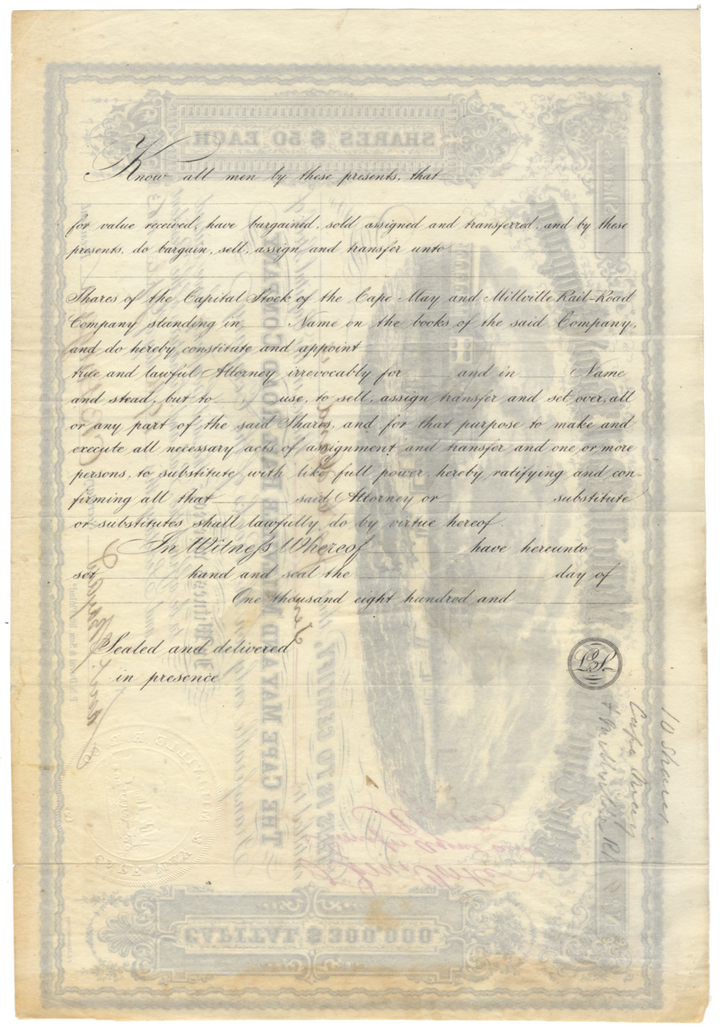 Know all men by these presents, that
for value received, have bargained, sold assigned and transferred, and by these
presents, do bargain, sell, assign and transfer unto
Shares of the Capital Stock of the Cape May and Millville Rail-Road
Company standing in Name on the books of the said Company,
and do hereby constitute and appoint
true and lawful Attorney irrevocably for and in Name
and stead, but to use, to sell, assign transfer and set over, all
or any part of the said Shares, and for that purpose to make and
execute all necessary acts of assignment and transfer and one or more
persons, to substitute with like full power hereby ratifying and con-
firming all that said Attorney or substitute
or substitutes shall lawfully do by virtue hereof.
In Witness Whereof have hereunto
set hand and seal the day of
One thousand eight hundred and
Sealed and delivered
in presence
10 Shares
Cape May
SHARES $ 50 EACH.
THE CAPE MAY AND
CAPITAL $ 300'000.